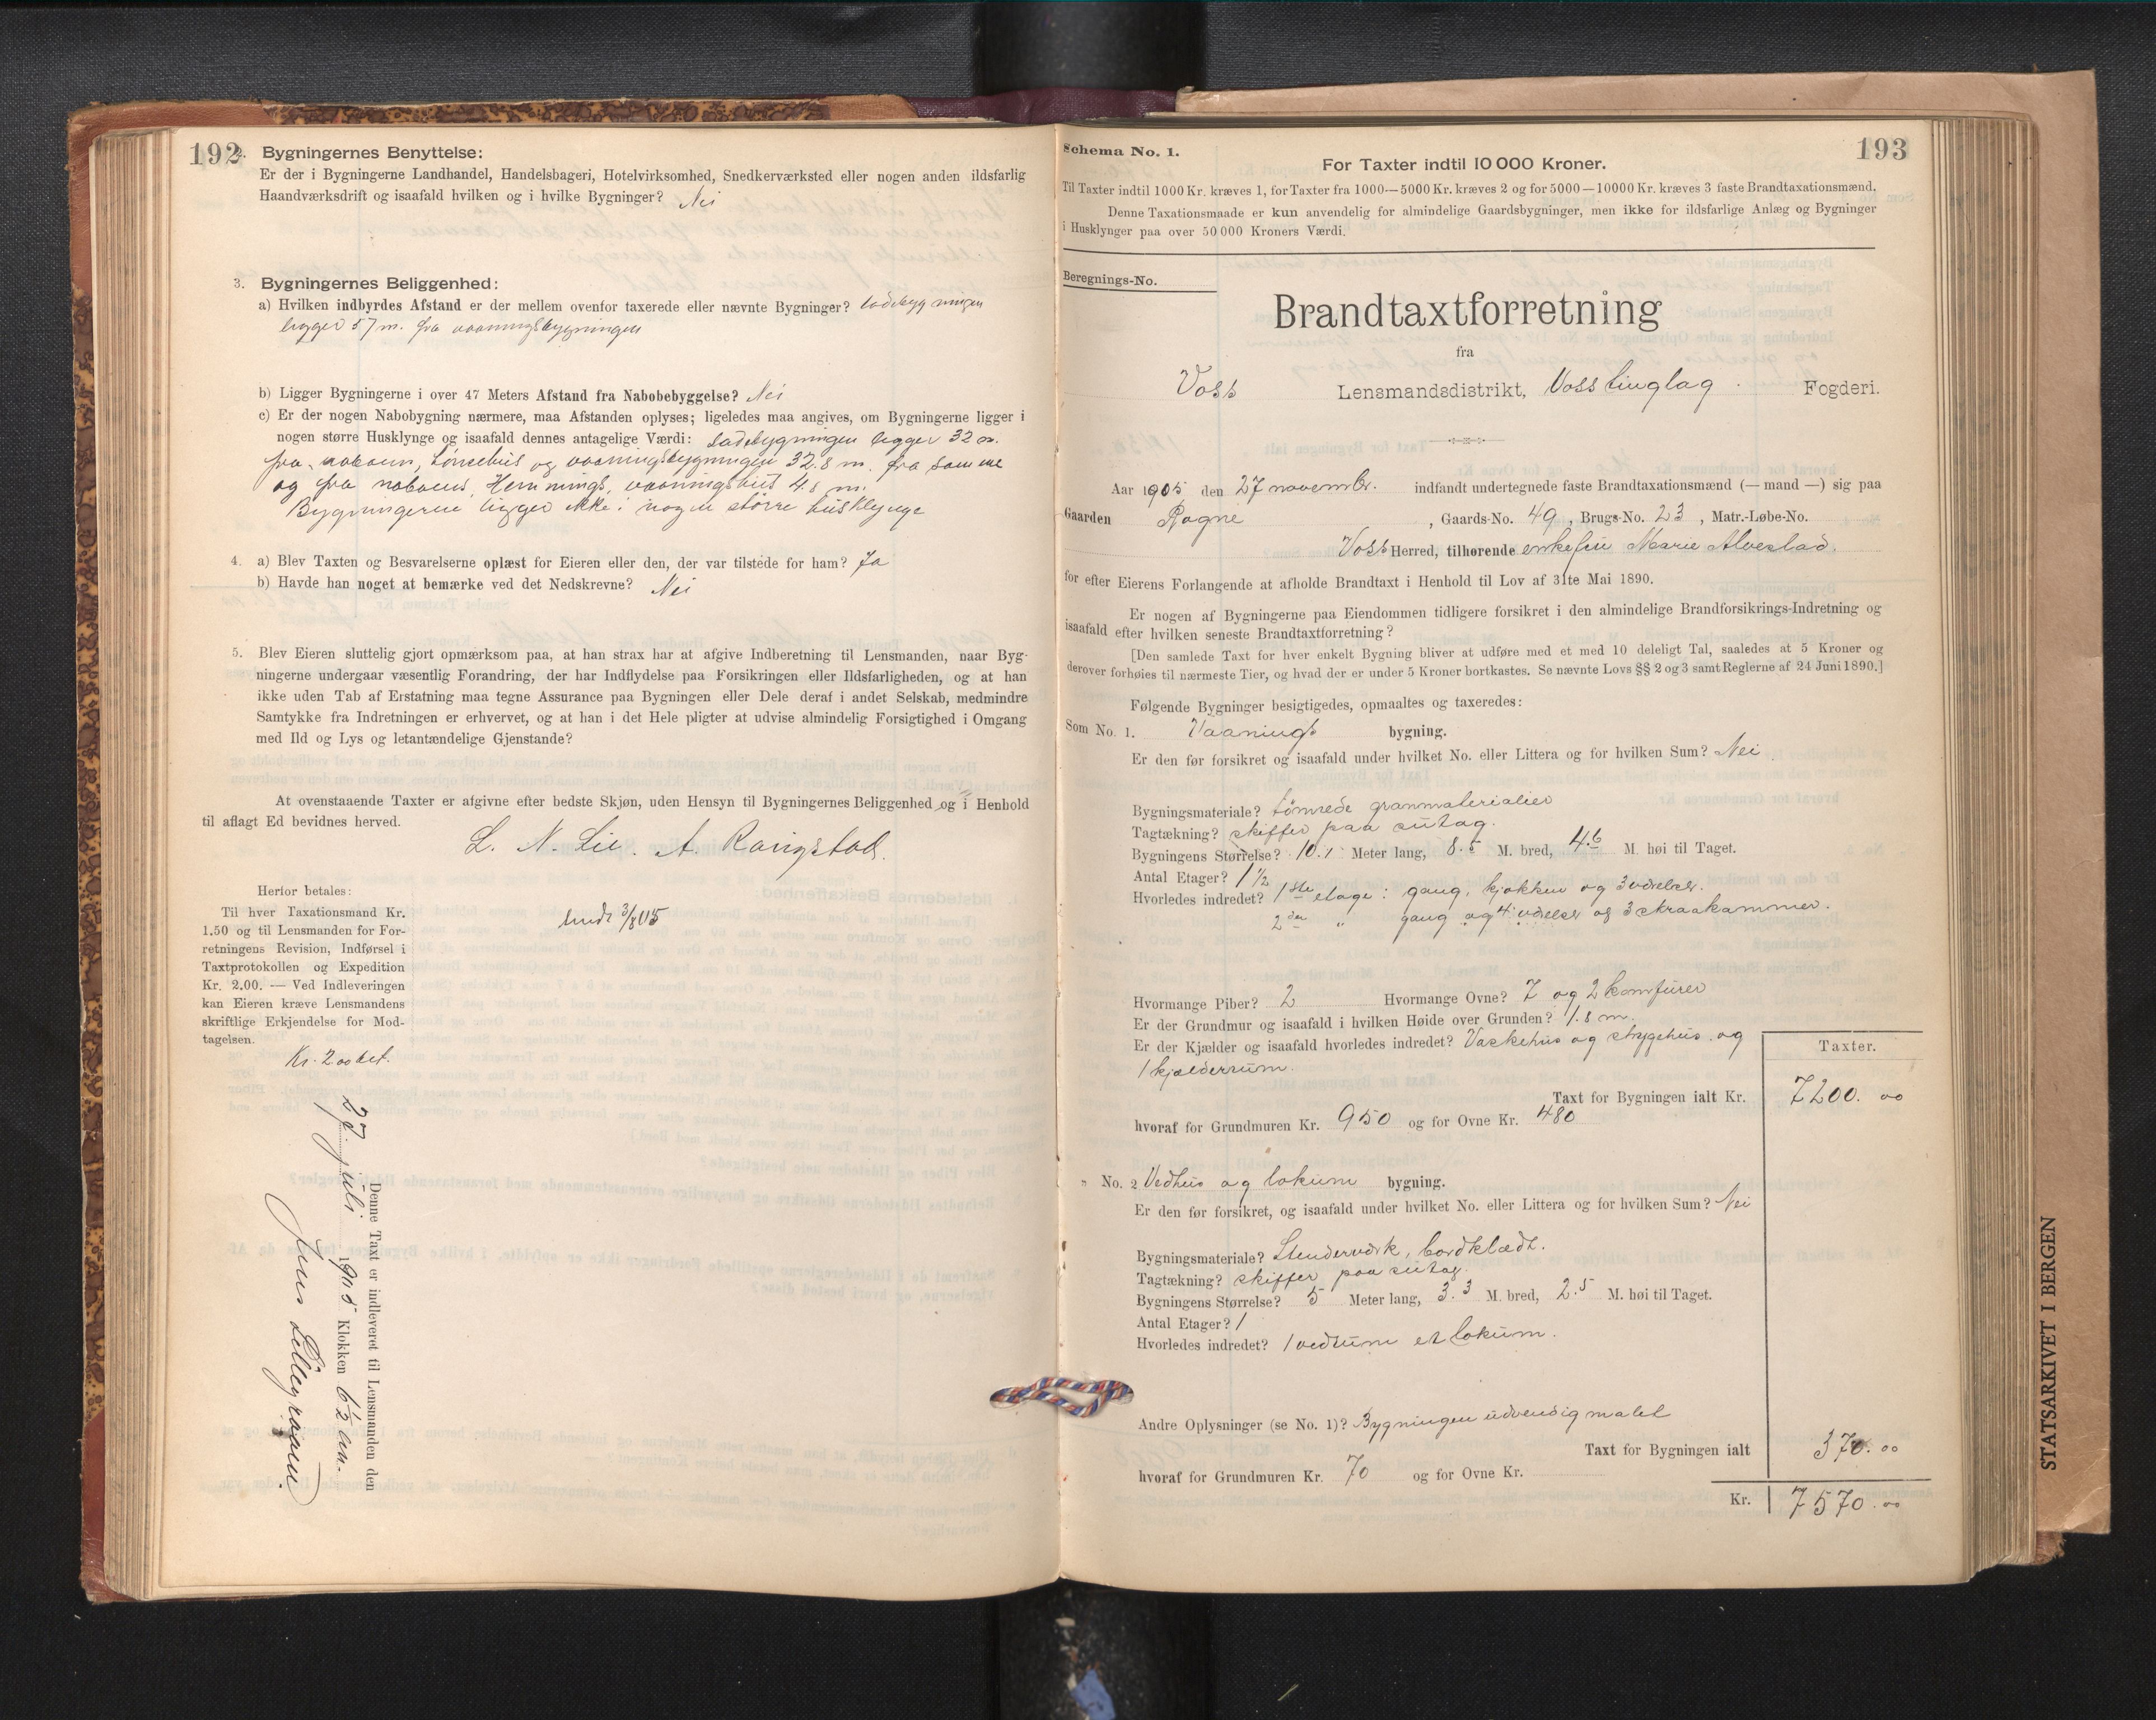 192
2. Bygningernes Benyttelse:
Er der i Bygningerne Landhandel, Handelsbageri, Hotelvirksomhed, Snedkerværksted eller nogen anden ildsfarlig
Haandværksdrift og isaafald hvilken og i hvilke Bygninger? Nei
3. Bygningernes Beliggenhed:
a) Hvilken indbyrdes Afstand er der mellem ovenfor taxerede eller nævnte Bygninger? Ladebygningen
ligger 57 m. fra vaaningsbygningen
b) Ligger Bygningerne i over 47 Meters Afstand fra Nabobebyggelse? Nei
c) Er der nogen Nabobygning nærmere, maa Afstanden oplyses; ligeledes maa angives, om Bygningerne ligger i
nogen større Husklynge og isaafald dennes antagelige Værdi: Ladebygningen ligger 32 m.
fra naboens, og vaaningsbygningen 32.8 m. fra samme
og fra naboens, Hemmings, vaaningshus 4.8 m.
Bygningerne ligger ikke i nogen større husklynge
4. a) Blev Taxten og Besvarelserne oplæst for Eieren eller den, der var tilstede for ham? Ja
b) Havde han noget at bemærke ved det Nedskrevne? Nei
5. Blev Eieren sluttelig gjort opmærksom paa, at han strax har at afgive Indberetning til Lensmanden, naar Byg-
ningerne undergaar væsentlig Forandring, der har Indflydelse paa Forsikringen eller Ildsfarligheden, og at han
ikke uden Tab af Erstatning maa tegne Assurance paa Bygningen eller Dele deraf i andet Selskab, medmindre
Samtykke fra Indretningen er erhvervet, og at han i det Hele pligter at udvise almindelig Forsigtighed i Omgang
med Ild og Lys og letantændelige Gjenstande?
At ovenstaaende Taxter er afgivne efter bedste Skjøn, uden Hensyn til Bygningernes Beliggenhed og i Henhold
til aflagt Ed bevidnes herved.
L. N. Lie. A. Rongstad.
Herfor betales:
Til hver Taxationsmand Kr.
1.50 og til Lensmanden for For-
retningens Revision, Indførsel i
Taxtprotokollen og Expedition
Kr. 2.00. — Ved Indleveringen
kan Eieren kræve Lensmandens
skriftlige Erkjendelse for Mod-
tagelsen.
sendt 3/8 05
Kr. 2 00 bet.
Denne Taxt er indleveret til Lensmanden den
27 juli 1905 Klokken 6½ em.
Jens Lillegraven
193
Schema No. 1.
For Taxter indtil 10 000 Kroner.
Til Taxter indtil 1000 Kr. kræves 1, for Taxter fra 1000—5000 Kr. kræves 2 og for 5000—10000 Kr. kræves 3 faste Brandtaxationsmænd.
Denne Taxationsmaade er kun anvendelig for almindelige Gaardsbygninger, men ikke for ildsfarlige Anlæg og Bygninger
i Husklynger paa over 50 000 Kroners Værdi.
Beregnings-No.
Brandtaxtforretning
fra
Voss Lensmandsdistrikt, Voss tinglag. Fogderi.
Aar 1905 den 27 novembr. indfandt undertegnede faste Brandtaxationsmænd (— mand —) sig paa
Gaarden Rogne, Gaards-No. 49, Brugs-No. 23, Matr.-Løbe-No.
Voss Herred, tilhørende enkefru Marie Alvestad.
for efter Eierens Forlangende at afholde Brandtaxt i Henhold til Lov af 31te Mai 1890.
Er nogen af Bygningerne paa Eiendommen tidligere forsikret i den almindelige Brandforsikrings-Indretning og
isaafald efter hvilken seneste Brandtaxtforretning?
[Den samlede Taxt for hver enkelt Bygning bliver at udføre med et med 10 deleligt Tal, saaledes at 5 Kroner og
derover forhøies til nærmeste Tier, og hvad der er under 5 Kroner bortkastes. Se nævnte Lovs §§ 2 og 3 samt Reglerne af 24 Juni 1890.]
Følgende Bygninger besigtigedes, opmaaltes og taxeredes:
Som No. 1. Vaanings bygning.
Er den før forsikret og isaafald under hvilket No. eller Littera og for hvilken Sum? Nei
Bygningsmateriale? tømrede granmaterialier
Tagtækning? skiffer paa sutag.
Bygningens Størrelse? 10.1 Meter lang, 8.5 M. bred, 4.6 M. høi til Taget.
Antal Etager? 1½
Hvorledes indredet? 1ste etage: gang, kjøkken og 3 værelser.
2den " gang og 4 værelser og 3 skraakammer.
Hvormange Piber? 2 Hvormange Ovne? 7 og 2 komfurer
Er der Grundmur og isaafald i hvilken Høide over Grunden? 1.8 m.
Er der Kjælder og isaafald hvorledes indredet? Vaskehus og strygehus og
1 kjælderrum.
Taxter.
Taxt for Bygningen ialt Kr. 7200. 00
hvoraf for Grundmuren Kr. 950 og for Ovne Kr. 480
" No. 2 Vedhus og lokum bygning.
Er den før forsikret, og isaafald under hvilket No. eller Littera og for hvilken Sum? Nei
Bygningsmateriale? Stenderverk, bordklædt.
Tagtækning? skiffer paa sutag.
Bygningens Størrelse? 5 Meter lang, 3.3 M. bred, 2.5 M. høi til Taget.
Antal Etager? 1
Hvorledes indredet? 1 vedrum et lokum.
Andre Oplysninger (se No. 1)? Bygningen udvendig malet
Taxt for Bygningen ialt 370. 00
hvoraf for Grundmuren Kr. 70 og for Ovne Kr.
Kr. 7570. 00
STATSARKIVET I BERGEN